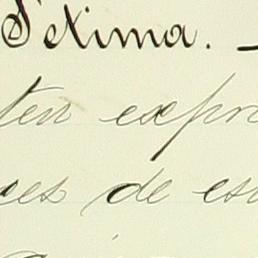 Setima. —
ten expr
ces de es